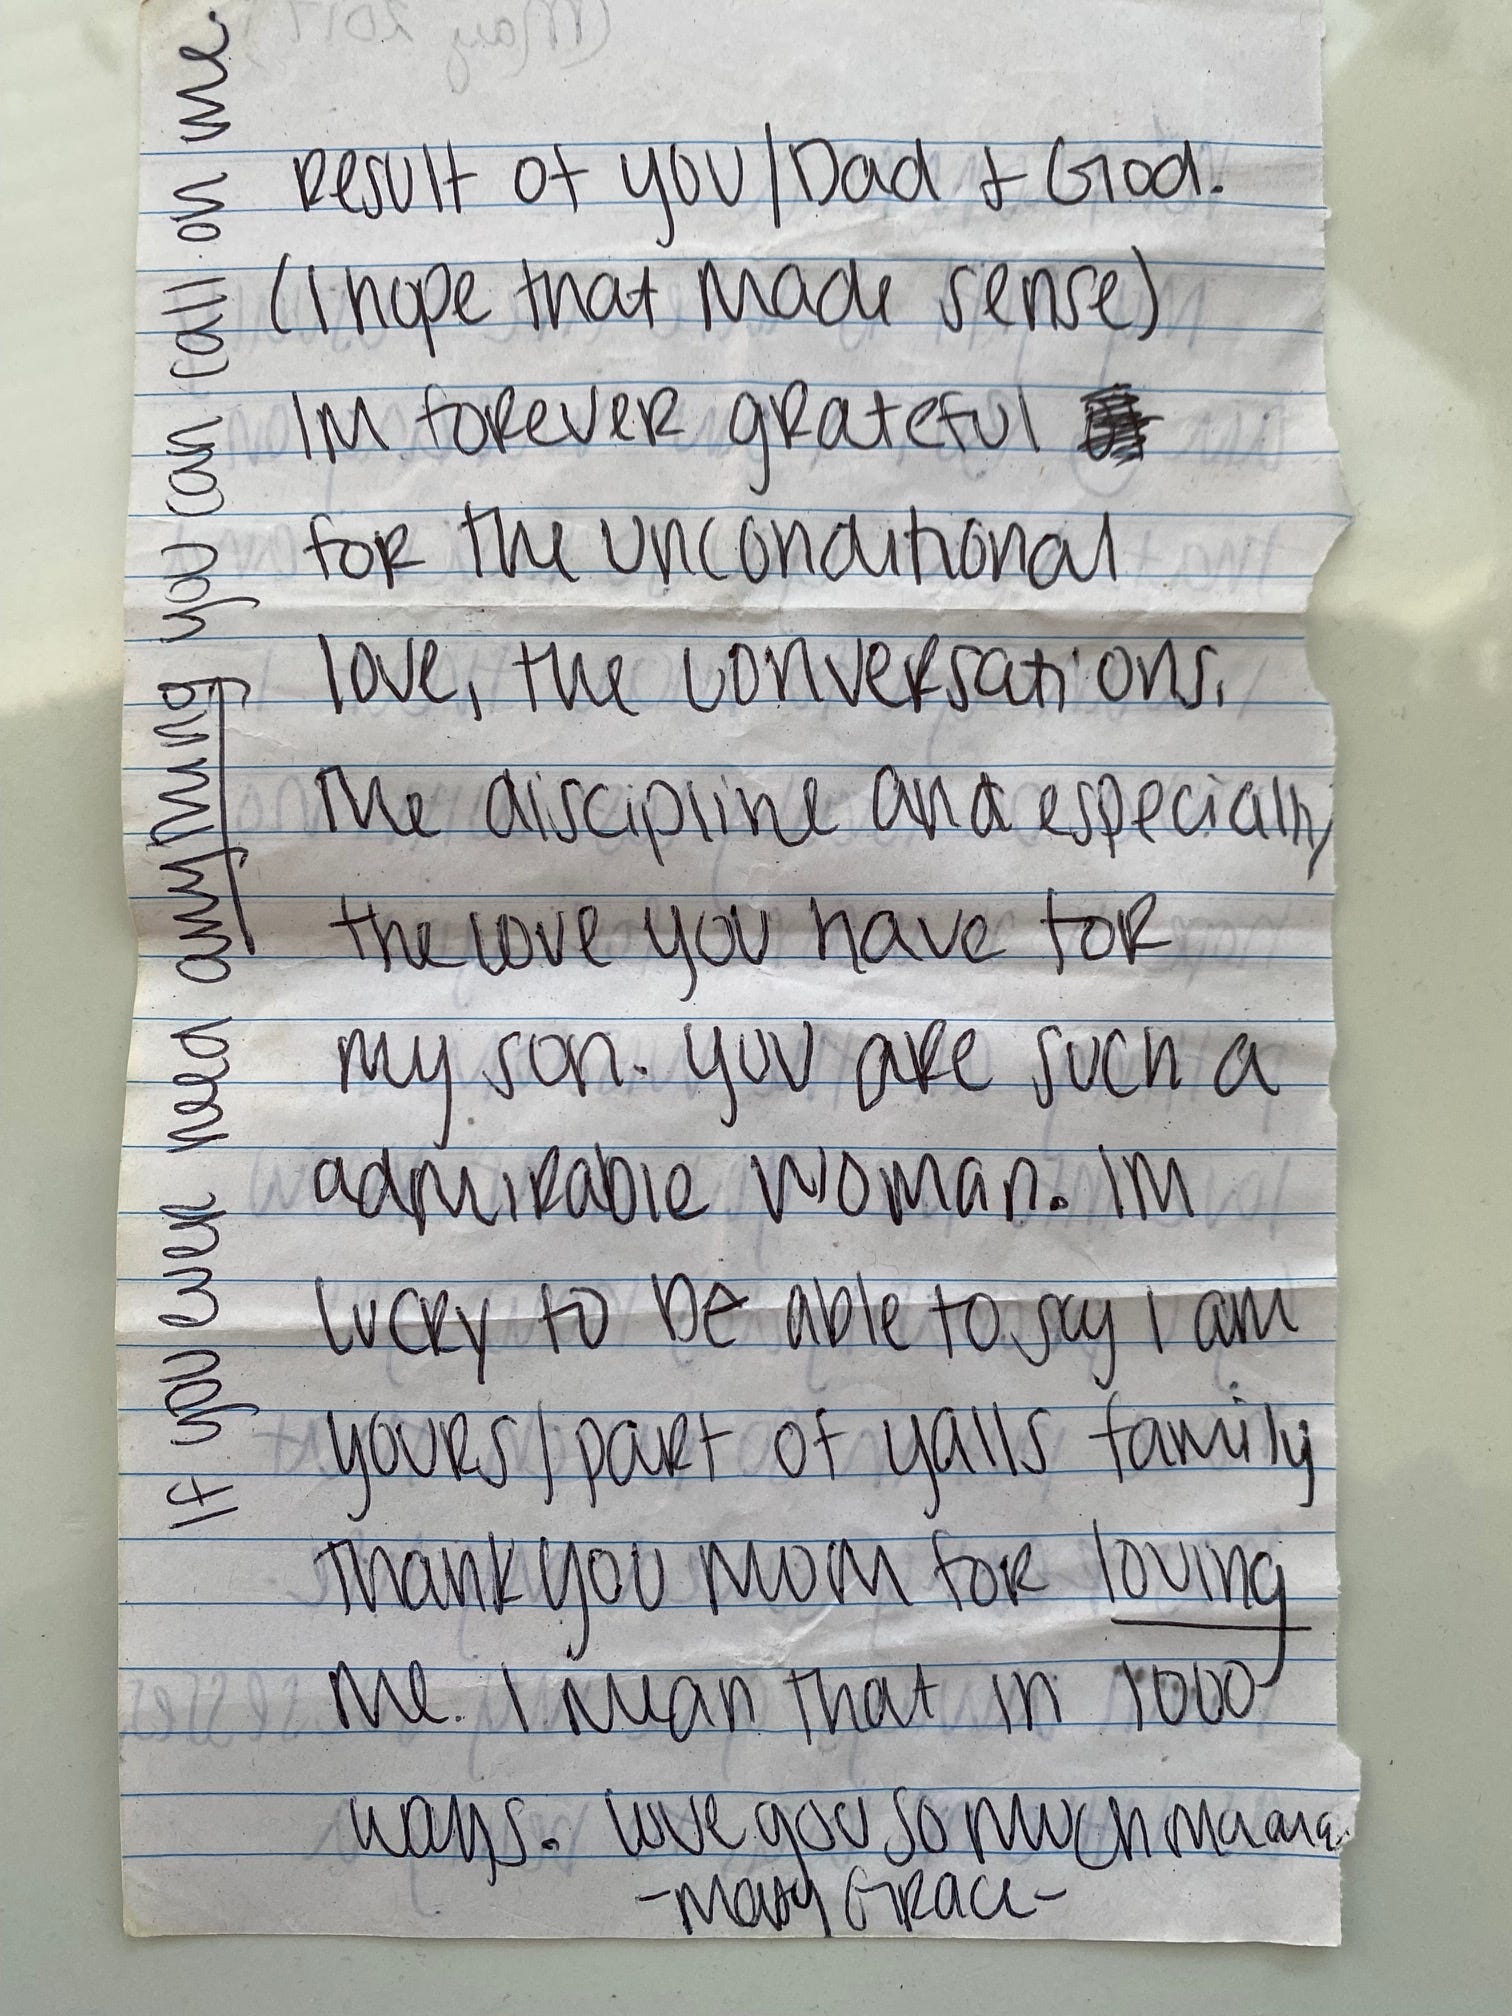 result of you/Dad & God.
(I hope that made sense)
Im forever grateful
for the unconditional
love, the conversations,
the discipline and especially
the love you have for
my son. you are such a
admirable woman. Im
lucky to be able to say I am
yours/part of yalls family
thank you mom for loving
me. I mean that in 1000
ways. love you so much mama.
-Mary Grace-
If you ever need anything you can call on me.
(May 2017)